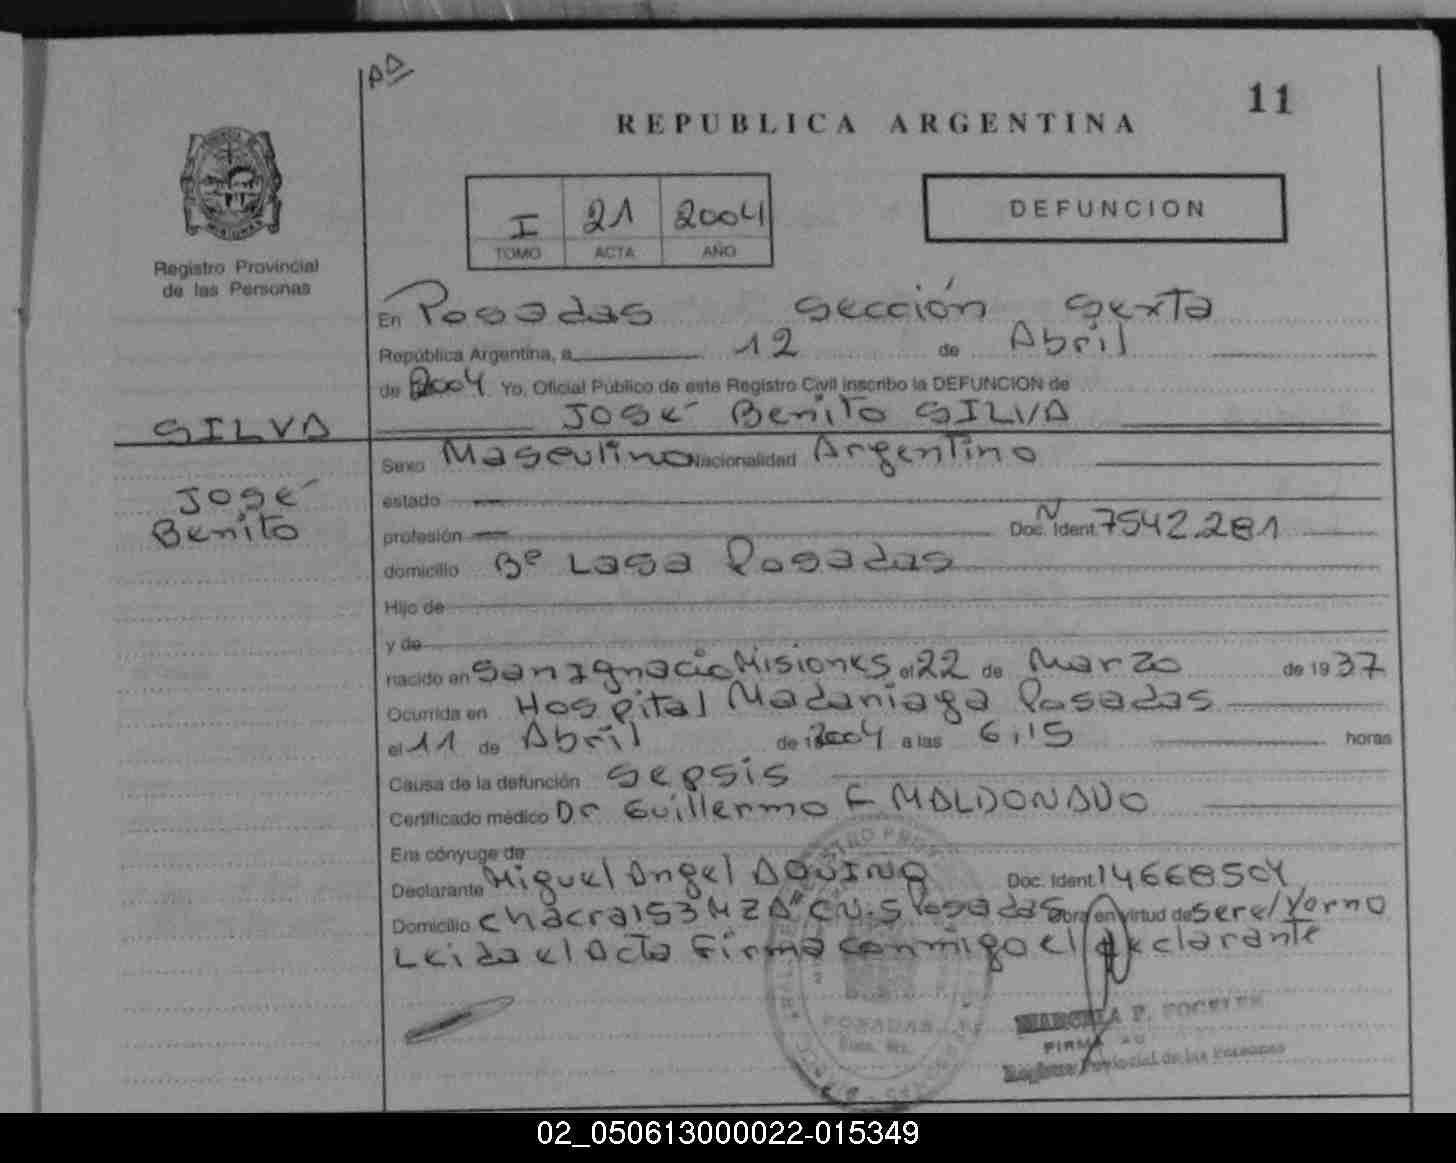 AD
11
REPUBLICA ARGENTINA
MISIONES
Registro Provincial
de las Personas
I 21 2004
TOMO ACTA AÑO
DEFUNCION
En Posadas Sección Sexta
República Argentina, a 12 de Abril
de 2004 Yo, Oficial Público de este Registro Civil inscribo la DEFUNCION de
José Benito SILVA
SILVA
José
Benito
Sexo Masculino Nacionalidad Argentino
estado
profesión Doc. Ident. N 7542.281
domicilio Bº Lasa Posadas
Hijo de
y de
nacido en San Ignacio Misiones el 22 de Marzo de 1937
Ocurrida en Hospital Madariaga Posadas
el 11 de Abril de 2004 a las 6,15 horas
Causa de la defunción Sepsis
Certificado médico Dr Guillermo F MALDONADO
Era cónyuge de
Declarante Miguel Angel AQUINO Doc. Ident. 14668504
Domicilio chacra 153 MZ A" C N.5 Posadas Obra en virtud de ser el Yerno
Leida el Acta Firma conmigo el declarante
POSADAS
MARCELA F.
FIRMA AU
Registro Provincial de las Personas
02_050613000022-015349